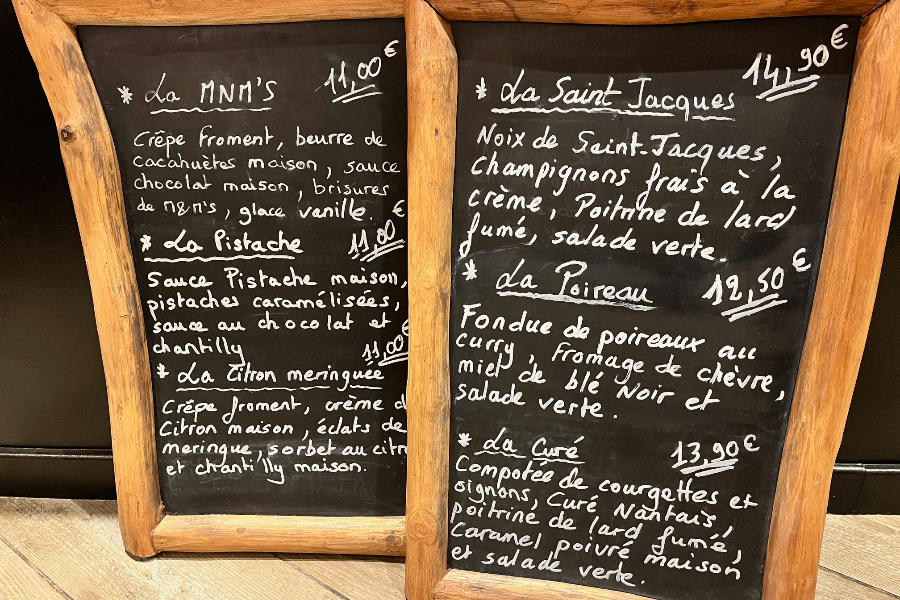 * La MNM'S 11,00€
Crêpe froment, beurre de
cacahuètes maison, sauce
chocolat maison, brisures
de M&M's, glace vanille.
* La Pistache 11,00€
Sauce Pistache maison,
pistaches caramélisées,
sauce au chocolat et
chantilly
* La Citron meringuée 11,00€
Crêpe froment, crème d
Citron maison, éclats de
meringue, sorbet au citr
et chantilly maison.
* La Saint Jacques 14,90€
Noix de Saint-Jacques,
Champignons frais à la
crème, Poitrine de lard
fumé, salade verte.
* La Poireau 12,50€
Fondue de poireaux au
curry, Fromage de chèvre,
miel de blé Noir et
salade verte.
* La Curé 13,90€
Compotée de courgettes et
oignons, Curé Nantais,
poitrine de lard fumé,
Caramel poivré maison
et salade verte.